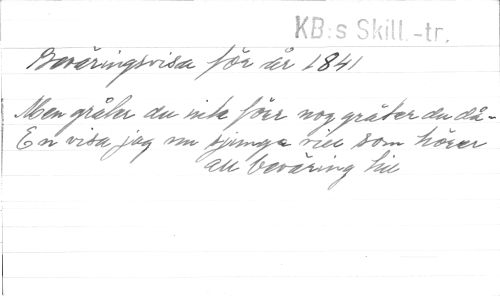 KB:s Skill.-tr.
Beväringsvisa för år 1841
Men gråter du inte förr nog gråter du då-
En visa jag nu sjunga vill som hörer
all beväring till